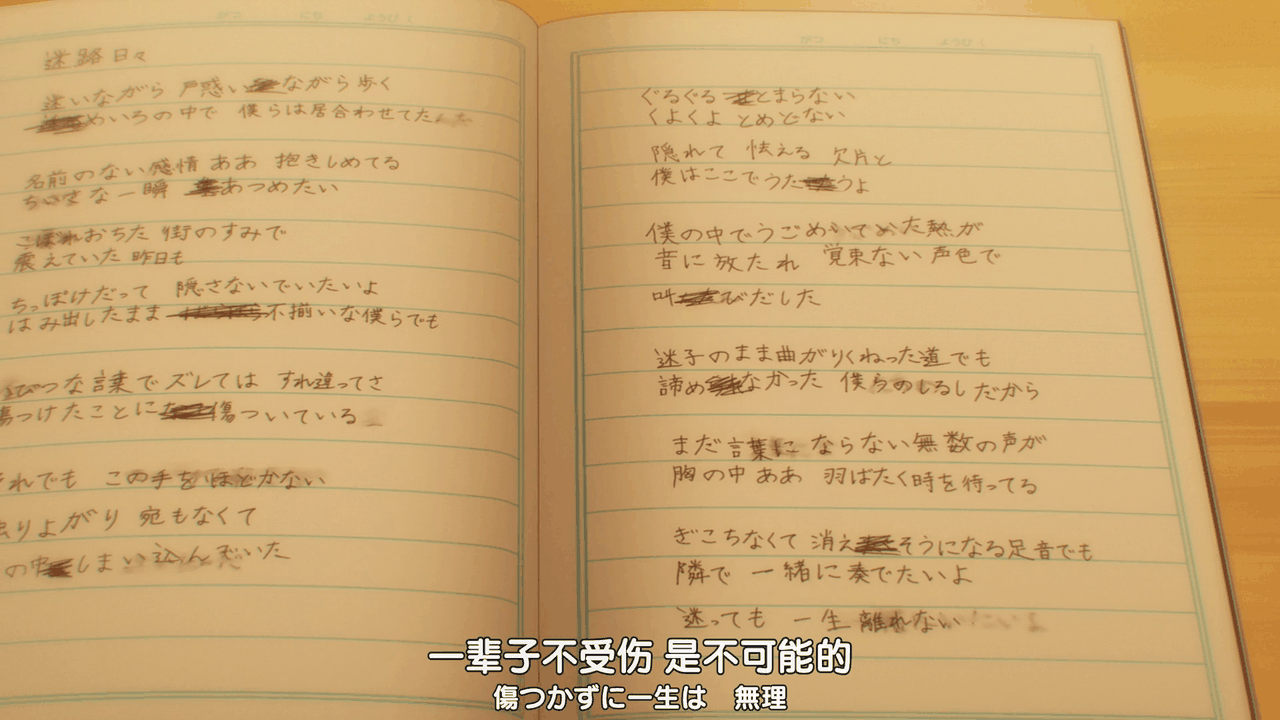 迷路日々
迷いながら 戸惑いながら歩く
めいろの中で 僕らは居合わせてた
名前のない感情 ああ 抱きしめてる
ちいさな一瞬 あつめたい
こぼれおちた 街のすみで
震えていた 昨日も
ちっぽけだって 隠さないでいたいよ
はみ出したまま 不揃いな僕らでも
いびつな言葉で ズレては すれ違ってさ
傷つけたことに 傷ついている
それでも この手をほどかない
よりがり 宛もなくて
の中 しまい込んでいた
がつ にち ようび
ぐるぐる とまらない
くよくよ とめどない
隠れて 怯える 欠片と
僕はここでうたうよ
僕の中でうごめいてめいた熱が
音に放たれ 覚束ない声色で
叫びだした
迷子のまま曲がりくねった道でも
諦めなかった 僕らのしるしだから
まだ言葉に ならない無数の声が
胸の中 ああ 羽ばたく時を待ってる
ぎこちなくて 消えそうになる足音でも
隣で 一緒に奏でたいよ
迷っても 一生 離れない
一辈子不受伤 是不可能的
傷つかずに一生は 無理